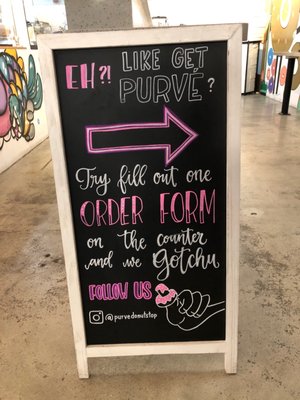 EH?! LIKE GET
PURVÉ?
Try fill out one
ORDER FORM
on the counter
and we Gotchu
FOLLOW US
@purvedonutstop